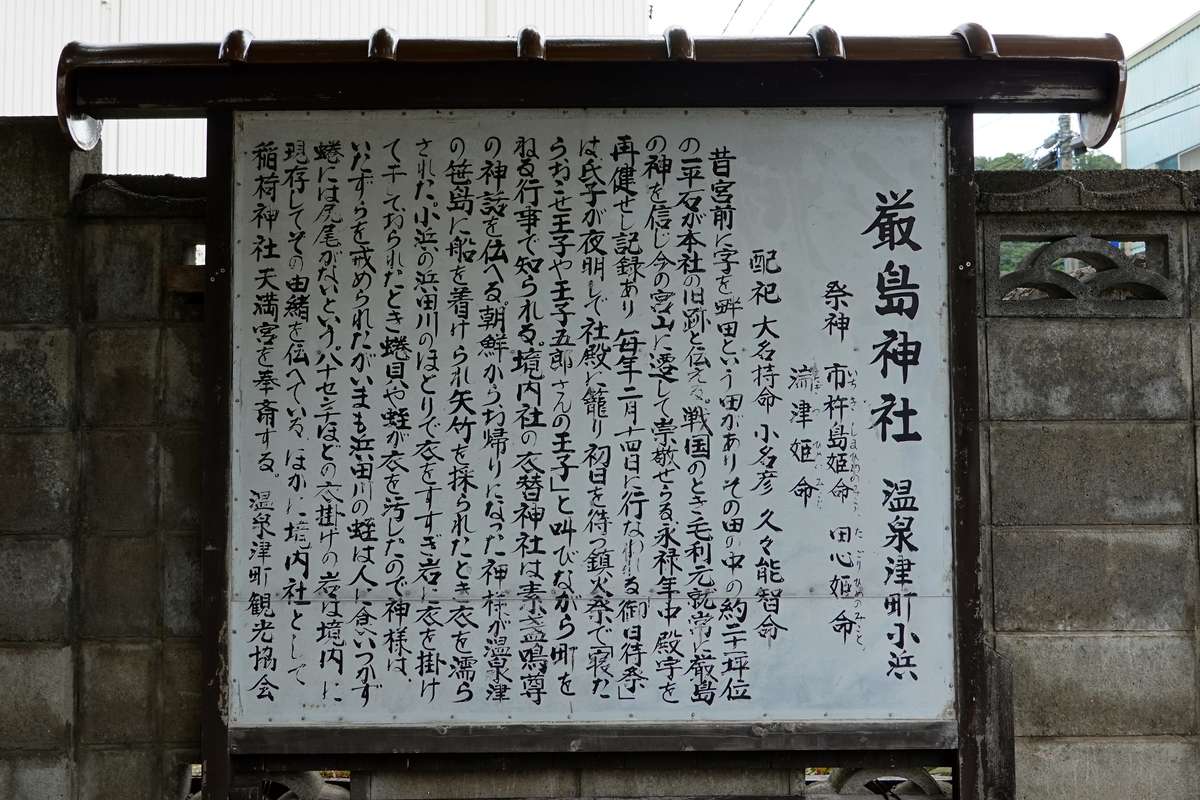 厳島神社 温泉津町小浜
祭神 市杵島姫命 田心姫命
湍津姫命
配祀 大名持命 小名彦 久々能智命
昔宮前に字を畔田という田がありその田の中の約二十一坪位
の平石が本社の旧跡と伝える。戦国のとき毛利元就常に厳島
の神を信じ今の宮山に遷して崇敬せらる永禄年中殿宇を
再健せし記録あり 毎年二月十四日に行なわれる御日待祭」
は氏子が夜明しで社殿に籠り 初日を待つ鎮火祭で「寝た
らおこせ王子や王子五郎さんの王子」と叫びながら町を
ねる行事で知られる。境内社の衣替神社は素盞鳴尊
の神話を伝へる。朝鮮からお帰りになった神様が温泉津
の笹島に船を着けられ矢竹を採られたとき衣を濡ら
された。小浜の浜田川のほとりで衣をすすぎ岩に衣を掛け
て干しておられたとき蜷貝や蛭が衣を汚したので神様は、
いたずらを戒められたがいまも浜田川の蛭は人に食いつかず
蜷には尻尾がないという。八十センチほどの衣掛けの岩は境内に
現存してその由緒を伝へている。ほかに境内社として
稲荷神社天満宮を奉斎する。 温泉津町観光協会